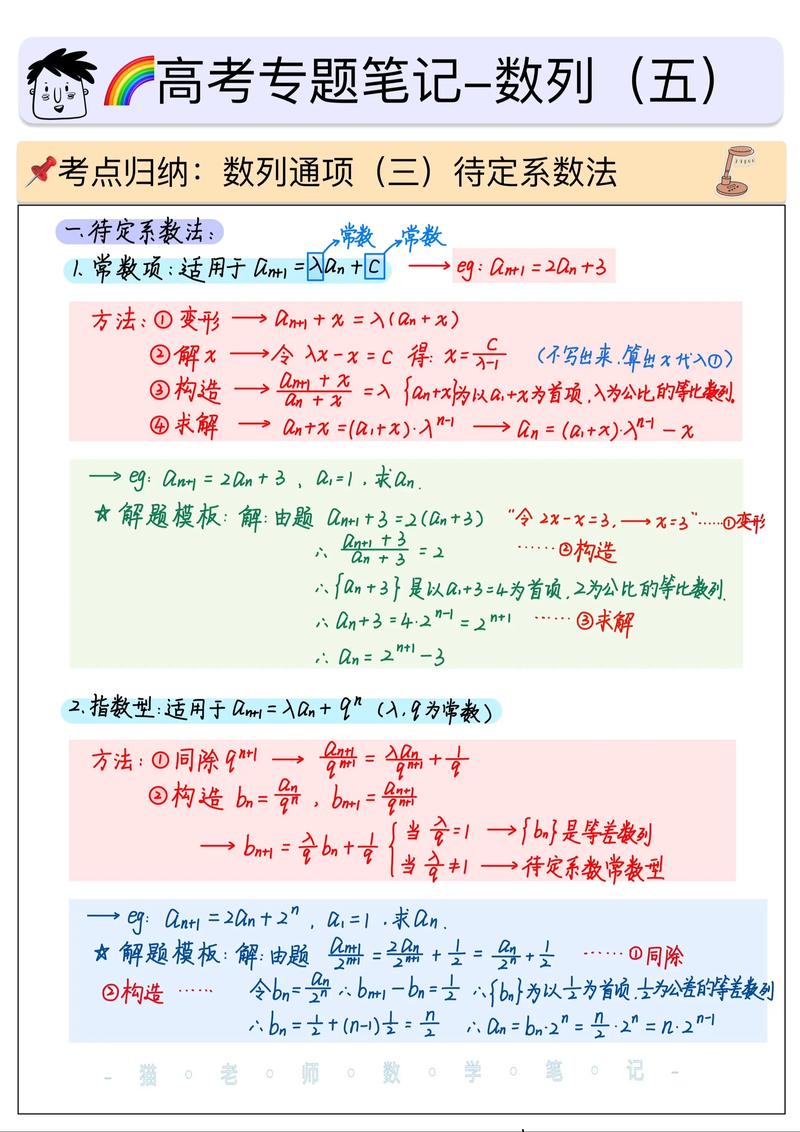 高考专题笔记-数列（五）
考点归纳：数列通项（三）待定系数法
一.待定系数法：
常数 常数
1. 常数项：适用于 aₙ₊₁=λaₙ+C → eg：aₙ₊₁=2aₙ+3
方法：① 变形 → aₙ₊₁+x=λ(aₙ+x)
② 解x → 令 λx-x=C 得：x=C/(λ-1) （不写出来，算出x代入①）
③ 构造 → (aₙ₊₁+x)/(aₙ+x)=λ {aₙ+x}为以a₁+x为首项，λ为公比的等比数列。
④ 求解 → aₙ+x=(a₁+x)·λⁿ⁻¹ → aₙ=(a₁+x)·λⁿ⁻¹-x
→ eg：aₙ₊₁=2aₙ+3，a₁=1，求aₙ.
☆ 解题模板：解：由题 aₙ₊₁+3=2(aₙ+3) “令 2x-x=3，→ x=3”……①变形
∴ (aₙ₊₁+3)/(aₙ+3)=2 ……②构造
∴{aₙ+3}是以a₁+3=4为首项，2为公比的等比数列.
∴ aₙ+3=4·2ⁿ⁻¹=2ⁿ⁺¹ ……③求解
∴ aₙ=2ⁿ⁺¹-3
2.指数型：适用于 aₙ₊₁=λaₙ+qⁿ（λ，q为常数）
方法：①同除qⁿ⁺¹ → aₙ₊₁/qⁿ⁺¹=λaₙ/qⁿ⁺¹+1/q
②构造 bₙ=aₙ/qⁿ，bₙ₊₁=aₙ₊₁/qⁿ⁺¹
→ bₙ₊₁=λ/q bₙ+1/q { 当 λ/q=1 → {bₙ}是等差数列
当 λ/q≠1 → 待定系数常数型
→ eg：aₙ₊₁=2aₙ+2ⁿ，a₁=1，求aₙ.
☆ 解题模板：解：由题 aₙ₊₁/2ⁿ⁺¹=2aₙ/2ⁿ⁺¹+1/2=aₙ/2ⁿ+1/2 ……①同除
②构造 …… 令bₙ=aₙ/2ⁿ ∴bₙ₊₁-bₙ=1/2 ∴{bₙ}为以1/2为首项，1/2为公差的等差数列
∴bₙ=1/2+(n-1)1/2=n/2 ∴aₙ=bₙ·2ⁿ=n/2·2ⁿ=n·2ⁿ⁻¹
- 猫 。 老 。 师 。 数 。 学 。 笔 。 记 -